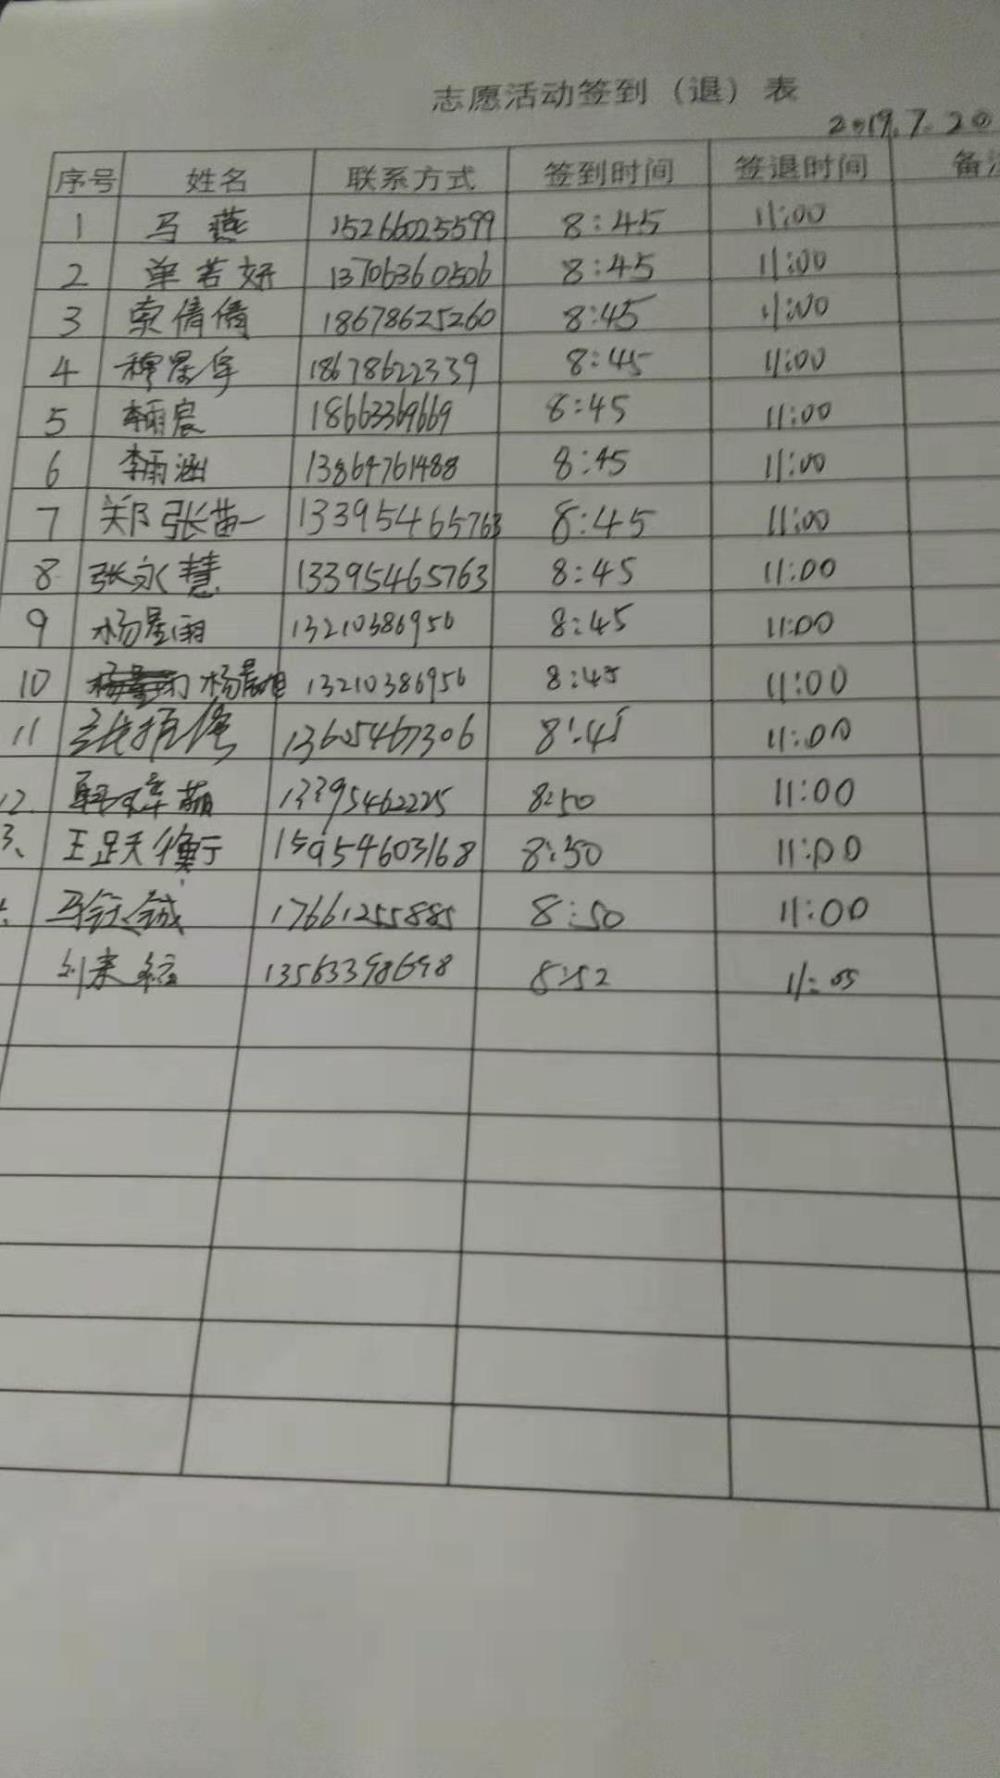 志愿活动签到（退）表
2019.7.20
序号 姓名 联系方式 签到时间 签退时间 备
1 马燕 15266025599 8:45 11:00
2 单若妍 13706360506 8:45 11:00
3 索倩倩 18678625260 8:45 11:00
4 18678622339 8:45 11:00
5 李雨宸 18663369669 8:45 11:00
6 李雨涵 13864761488 8:45 11:00
7 郑张苗一 13395465763 8:45 11:00
8 张永慧 13395465763 8:45 11:00
9 杨星雨 13210386956 8:45 11:00
10 杨晨旭 13210386956 8:45 11:00
11 13605467306 8:45 11:00
12. 13395462225 8:50 11:00
3、 王 15954603168 8:50 11:00
马钰诚 17661255885 8:50 11:00
刘来 13563398698 8:52 11:05